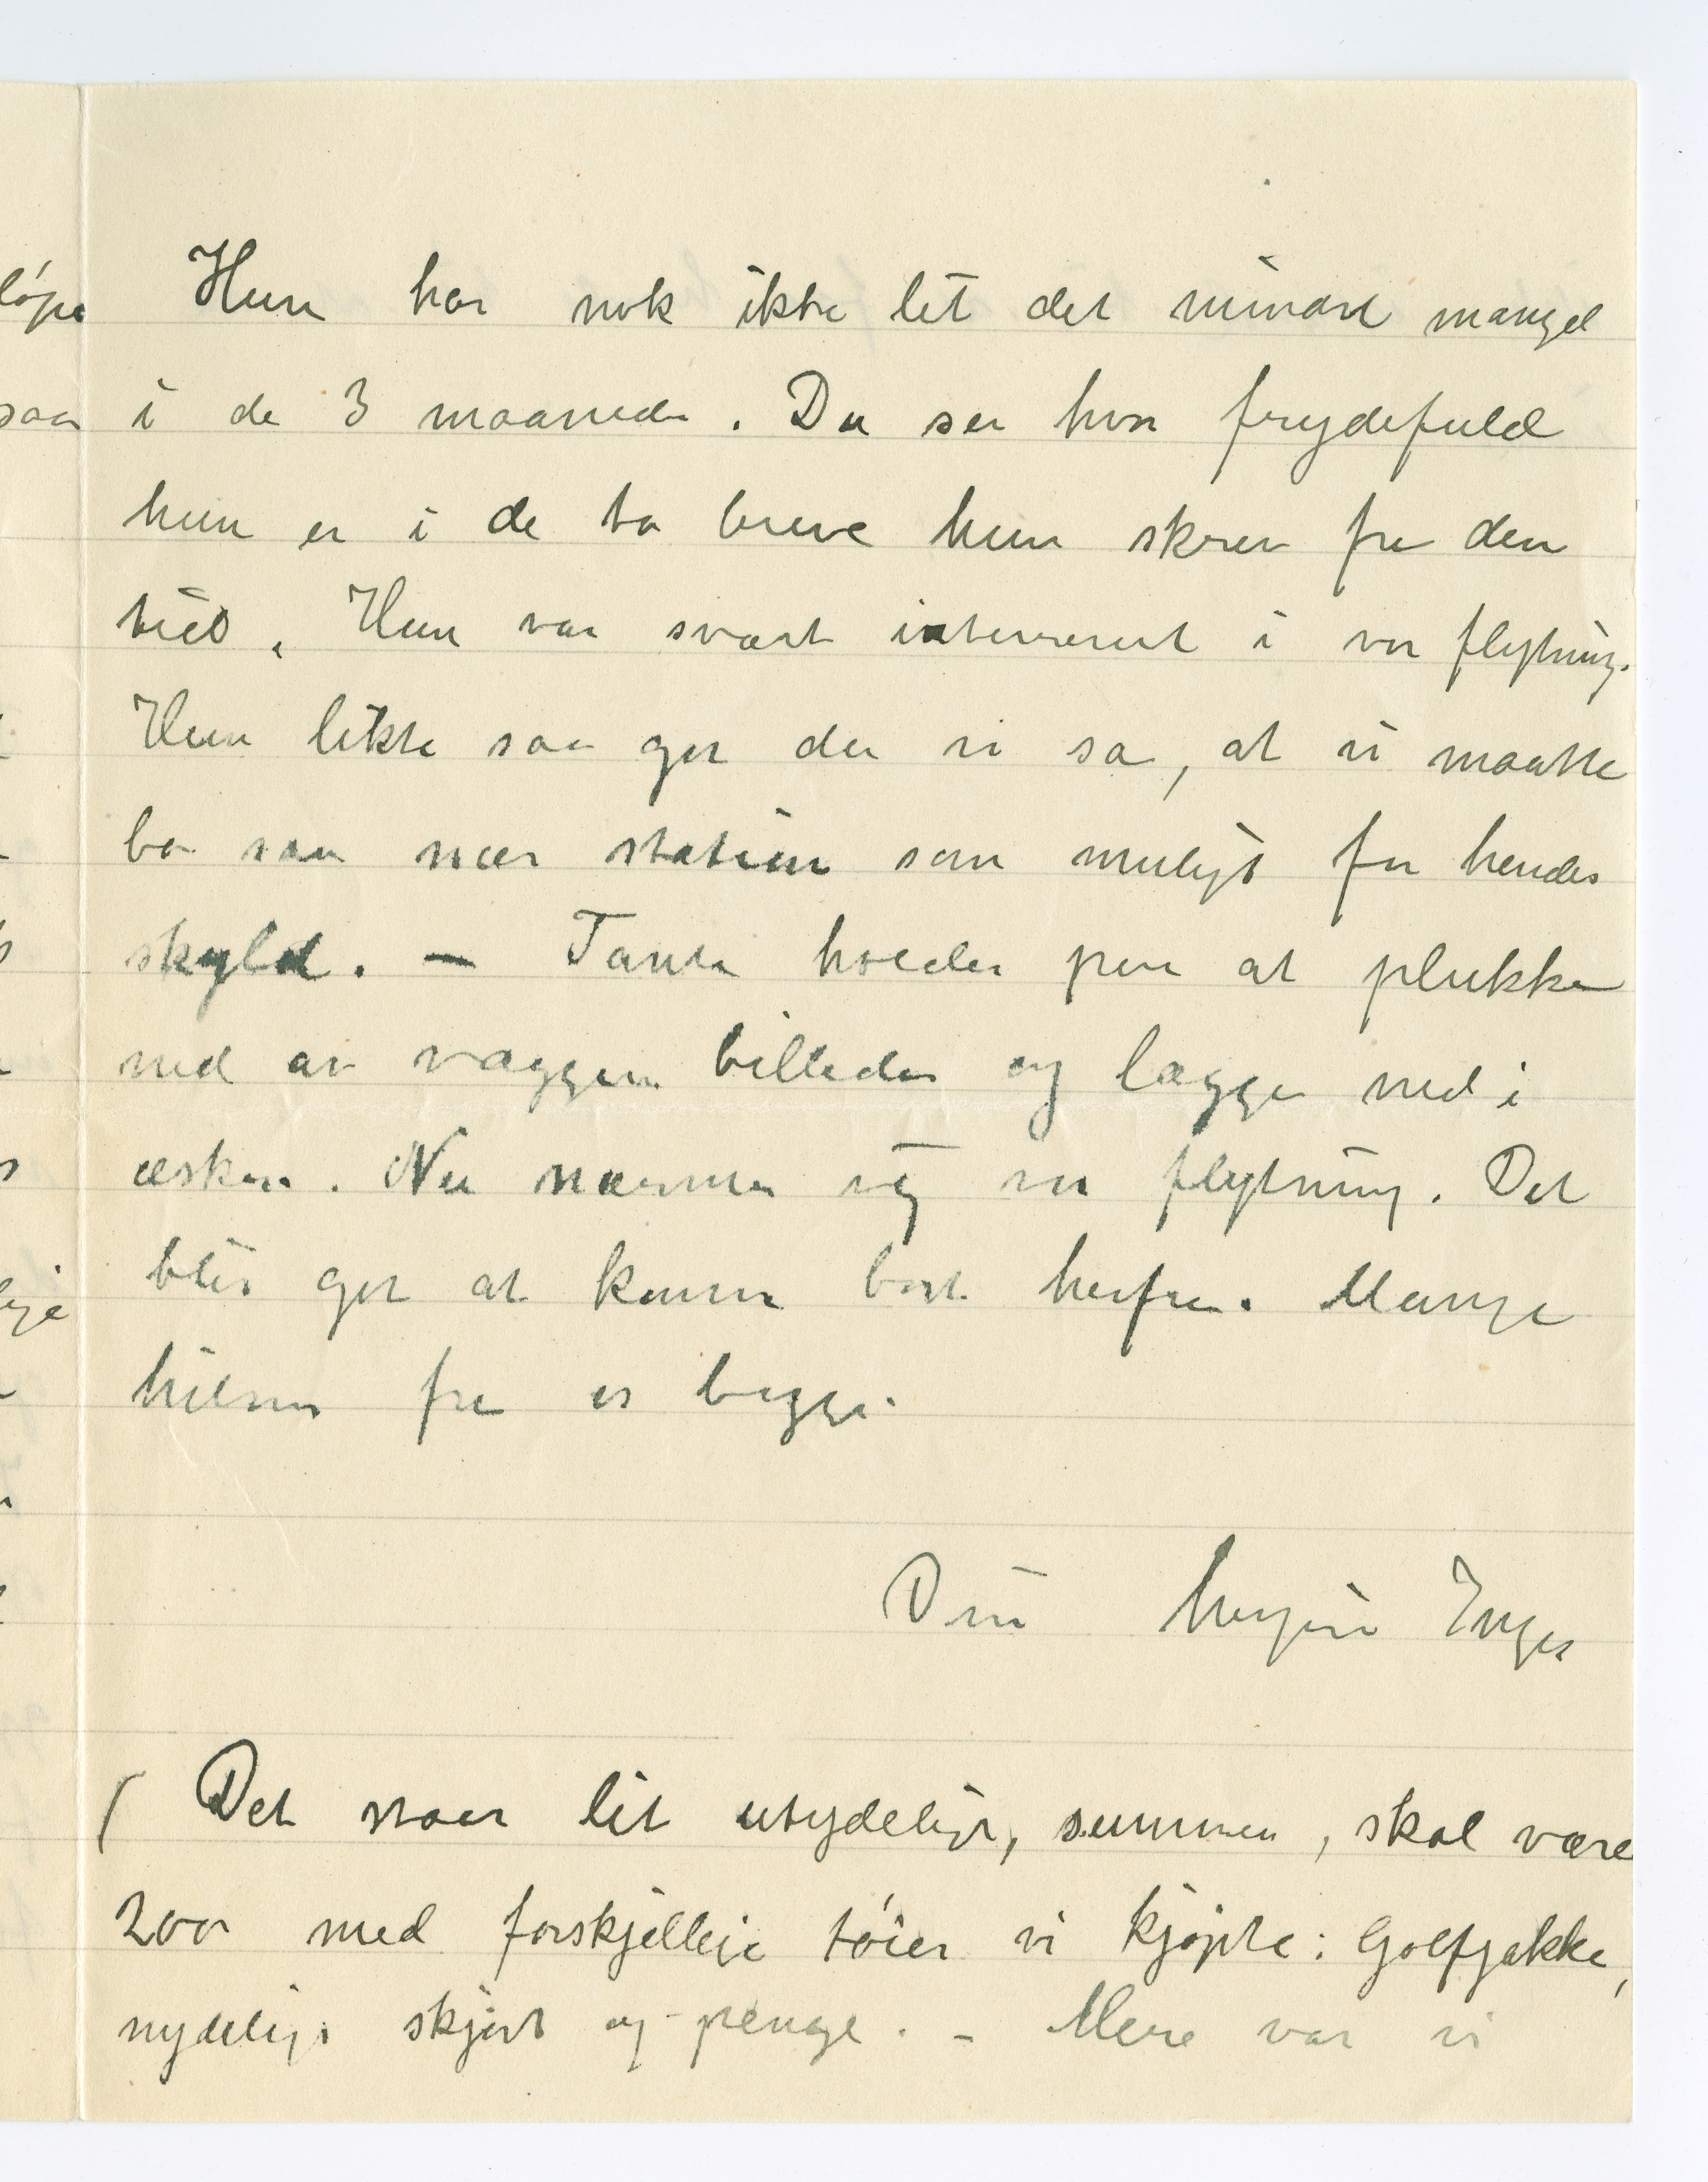 Hun har nok ikke lit det mindste mangel
i de 3 maaneder. Du ser hvor frydefuld
hun er i de to breve hun skrev fra den
tid. Hun var svært interesseret i vor flytning.
Hun likte saa got da vi sa, at vi maatte
bo saa nær station som muligt for hendes
skyld. — Tante holder paa at plukke
ned av væggen billeder og lægge ned i
æsker. Nu nærmer sig vor flytning. Det
blir got at komme bort herfra. Mange
hilsner fra os begge.
Din hengivne Inger
( Det staar lit utydeligt, summen, skal være
200 med forskjellige tøier vi kjøpte: Golfjakke,
nydeligt skjørt og penge. – Mere var vi